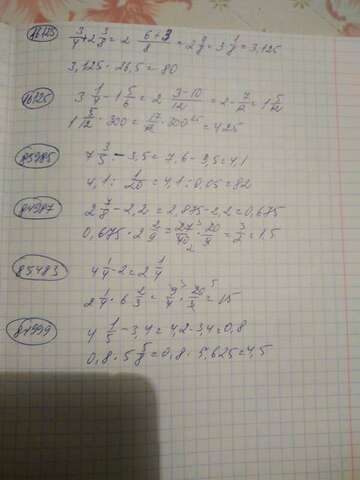 16125 3/4+2 3/8=2 6+3/8=2 9/8=3 1/8=3,125
3,125 · 26,5=80
16225 3 1/4-1 5/6=2 3-10/12=2-7/12=1 5/12
1 5/12 · 300=17/12 · 300 25=425
85985 7 3/5-3,5=7,6-3,5=4,1
4,1:1/20=4,1:0,05=82
84987 2 7/8-2,2=2,875-2,2=0,675
0,675 · 2 2/9=27/40 · 20/9=3/2=1 5
85483 4 1/4-2=2 1/4
2 1/4 · 6 2/3=9/4 · 20/3=15
84999 4 1/5-3,4=4,2-3,4=0,8
0,8 · 5 5/8=0,8 · 5,625=4,5